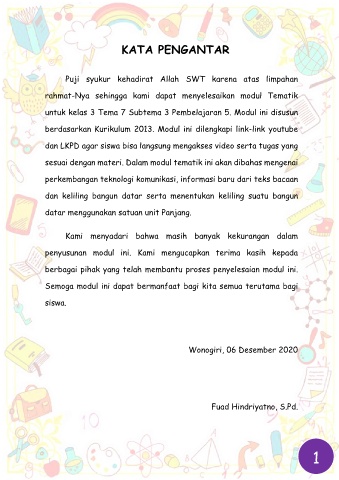 KATA PENGANTAR
Puji syukur kehadirat Allah SWT karena atas limpahan
rahmat-Nya sehingga kami dapat menyelesaikan modul Tematik
untuk kelas 3 Tema 7 Subtema 3 Pembelajaran 5. Modul ini disusun
berdasarkan Kurikulum 2013. Modul ini dilengkapi link-link youtube
dan LKPD agar siswa bisa langsung mengakses video serta tugas yang
sesuai dengan materi. Dalam modul tematik ini akan dibahas mengenai
perkembangan teknologi komunikasi, informasi baru dari teks bacaan
dan keliling bangun datar serta menentukan keliling suatu bangun
datar menggunakan satuan unit Panjang.
Kami menyadari bahwa masih banyak kekurangan dalam
penyusunan modul ini. Kami mengucapkan terima kasih kepada
berbagai pihak yang telah membantu proses penyelesaian modul ini.
Semoga modul ini dapat bermanfaat bagi kita semua terutama bagi
siswa.
Wonogiri, 06 Desember 2020
Fuad Hindriyatno, S.Pd.
1